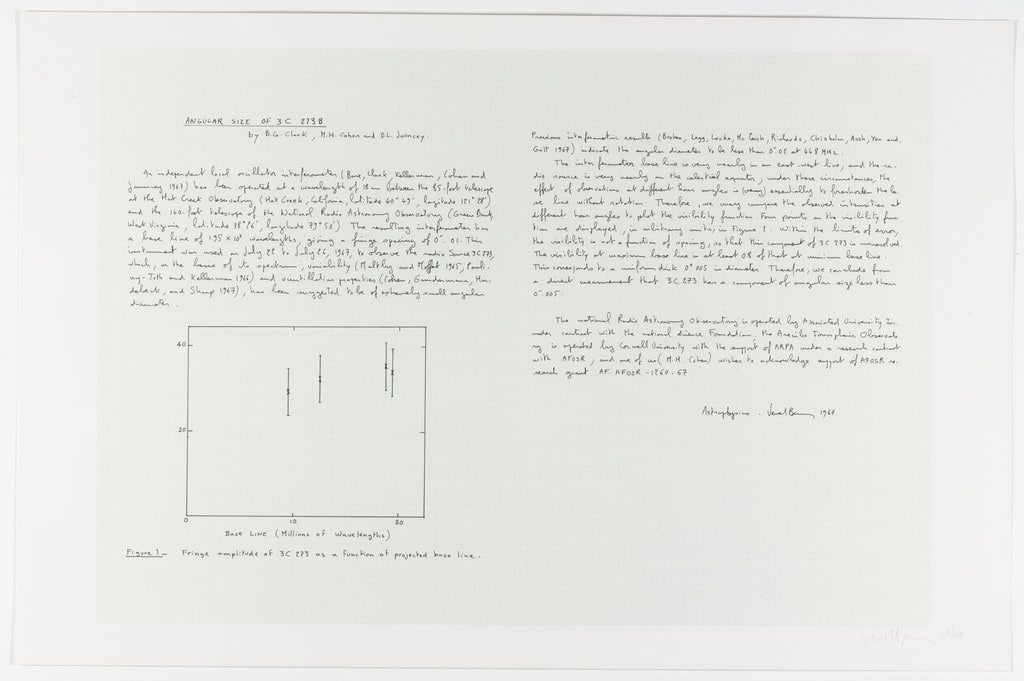 ANGULAR SIZE OF 3C 273B
by B.G. Clark, M.H. Cohen and D.L. Jauncey.
An independent local oscillator interferometer (Bare, Clark, Kellerman, Cohen and
Jauncey 1967) has been operated at a wavelength of 18 cm between the 85-foot telescope
at the Hat Creek Observatory (Hat Creek, California, latitude 40° 49', longitude 121° 28')
and the 140-foot telescope of the National Radio Astronomy Observatory (Green Bank,
West Virginia, latitude 38° 26', longitude 79° 50'). The resulting interferometer has
a base line of wavelengths, giving a fringe spacing of 0".01. This
instrument was used, on July 22 to July 26, 1967, to observe the radio source 3C 273,
which, on the basis of its spectrum, variability (Maltby and Moffet 1965, Pauli
ny-Toth and Kellerman 1966) and scintillation properties (Cohen, Gundermann, Har
debeck, and Sharp 1967), has been suggested to be of extremely small angular
diameter.
40
20
0
10
20
BASE LINE (Millions of Wavelengths)
Figure 1 - Fringe amplitude of 3C 273 as a function of projected base line.
Previous interferometric results (Broten, Legg, Locke, Mc Leish, Richards, Chisholm, Gush, Yen and
Galt 1967) indicate the angular diameter to be less than 0".02 at 448 MHz.
The interferometer base line is very nearly in an east west line, and the ra-
dio source is very nearly on the celestial equator, under these circumstances, the
effect of observations at different hour angles is (very) essentially to foreshorten the ba
se line without rotation. Therefore, we may compare the observed intensities at
different hour angles to plot the visibility function. Four points on the visibility func
tion are displayed, in arbitrary units, in Figure 1. Within the limits of error,
the visibility is not a function of spacing, so that this component of 3C 273 is unresolved.
The visibility at maximum base line is at least 0.8 of that at minimum base line.
This corresponds to a uniform disk 0".005 in diameter. Therefore, we conclude from
a direct measurement that 3C 273 has a component of angular size less than
0".005.
The national Radio Astronomy Observatory is operated by Associated University Inc.
under contract with the national Science Foundation, the Arecibo Ionospheric Observato
ry is operated by Cornell University with the support of ARPA under a research contract
with AFOSR, and one of us (M.H. Cohen) wishes to acknowledge support of AFOSR re
search grant AF AFOSR-1260-67.
Astrophysics. Venet 1967